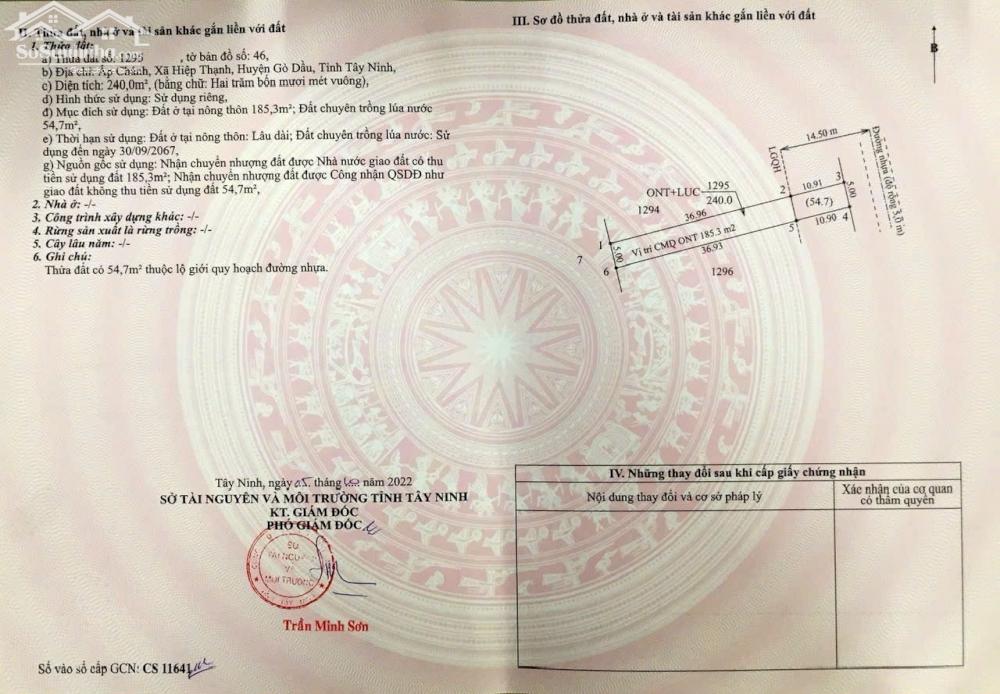 II. Thửa đất, nhà ở và tài sản khác gắn liền với đất
1. Thửa đất:
a) Thửa đất số: 1295 , tờ bản đồ số: 46,
b) Địa chỉ: Ấp Chánh, Xã Hiệp Thạnh, Huyện Gò Dầu, Tỉnh Tây Ninh,
c) Diện tích: 240,0m², (bằng chữ: Hai trăm bốn mươi mét vuông),
d) Hình thức sử dụng: Sử dụng riêng,
đ) Mục đích sử dụng: Đất ở tại nông thôn 185,3m²; Đất chuyên trồng lúa nước
54,7m²,
e) Thời hạn sử dụng: Đất ở tại nông thôn: Lâu dài; Đất chuyên trồng lúa nước: Sử
dụng đến ngày 30/09/2067,
g) Nguồn gốc sử dụng: Nhận chuyển nhượng đất được Nhà nước giao đất có thu
tiền sử dụng đất 185,3m²; Nhận chuyển nhượng đất được Công nhận QSDĐ như
giao đất không thu tiền sử dụng đất 54,7m²,
2. Nhà ở: -/-
3. Công trình xây dựng khác: -/-
4. Rừng sản xuất là rừng trồng: -/-
5. Cây lâu năm: -/-
6. Ghi chú:
Thửa đất có 54,7m² thuộc lộ giới quy hoạch đường nhựa.
Tây Ninh, ngày tháng năm 2022
SỞ TÀI NGUYÊN VÀ MÔI TRƯỜNG TỈNH TÂY NINH
KT. GIÁM ĐỐC
PHÓ GIÁM ĐỐC
SỞ
TÀI NGUYÊN
VÀ
MÔI TRƯỜNG
Trần Minh Sơn
Số vào sổ cấp GCN: CS 11641
III. Sơ đồ thửa đất, nhà ở và tài sản khác gắn liền với đất
B
14.50 m
LGQH
Đường nhựa (độ rộng 3,0 m)
ONT+LUC
1295
240.0
2
10.91
3
1294
36.96
(54.7)
5.00
1
5.00
Vị trí CMĐ ONT 185.3 m2
5
10.90
4
7
6
36.93
1296
IV. Những thay đổi sau khi cấp giấy chứng nhận
Nội dung thay đổi và cơ sở pháp lý
Xác nhận của cơ quan
có thẩm quyền